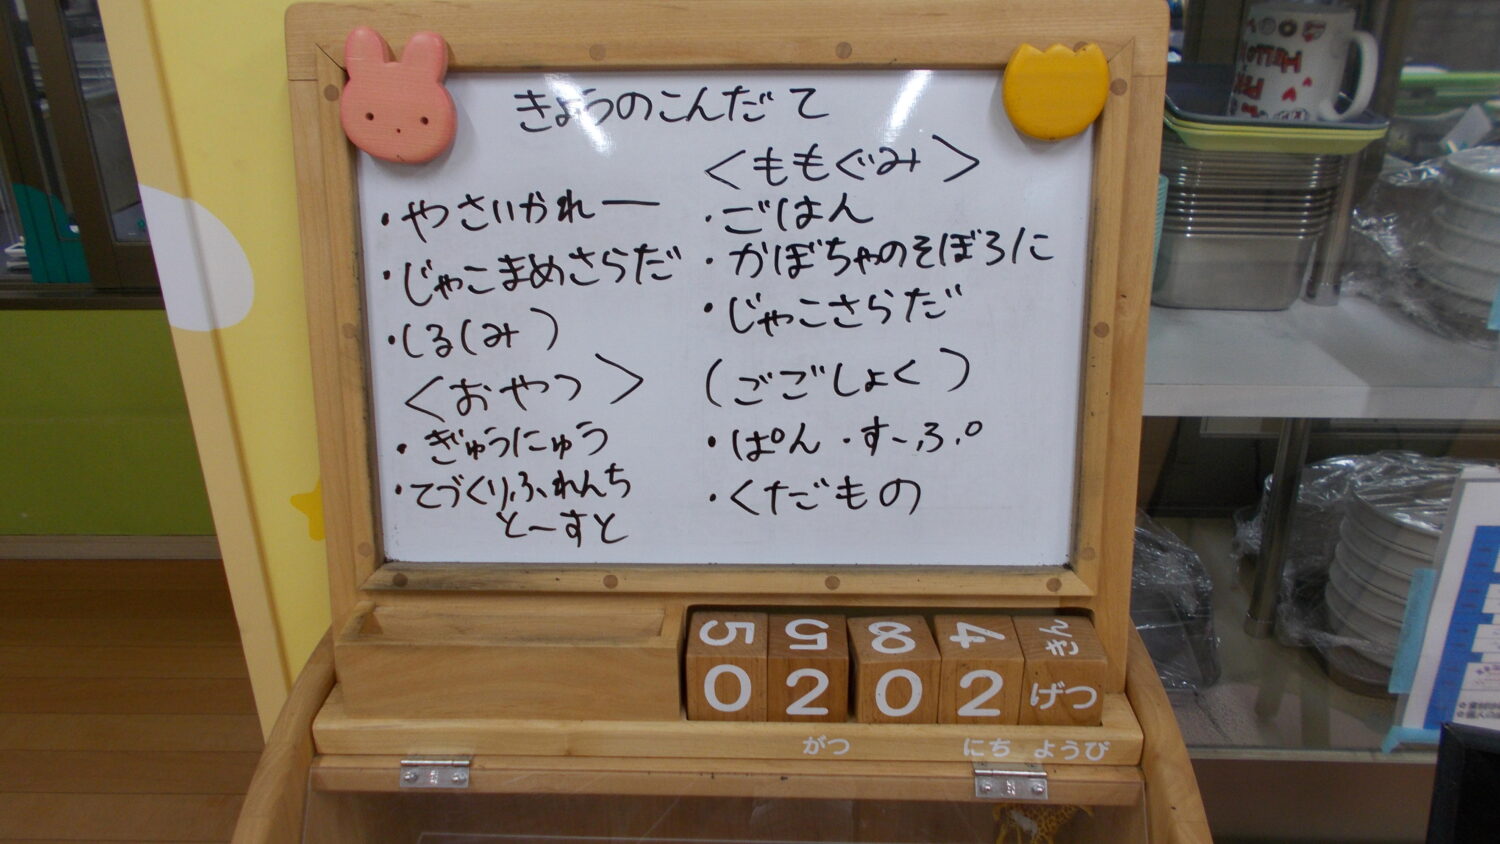 きょうのこんだて
・やさいかれー
・じゃこまめさらだ
・しる(み)
<おやつ>
・ぎゅうにゅう
・てづくりふれんち
とーすと
<ももぐみ>
・ごはん
・かぼちゃのそぼろに
・じゃこさらだ
(ごごしょく)
・ぱん・すーぷ
・くだもの
5 5 8 4 きん
0 2 0 2 げつ
がつ にち ようび
HELLO